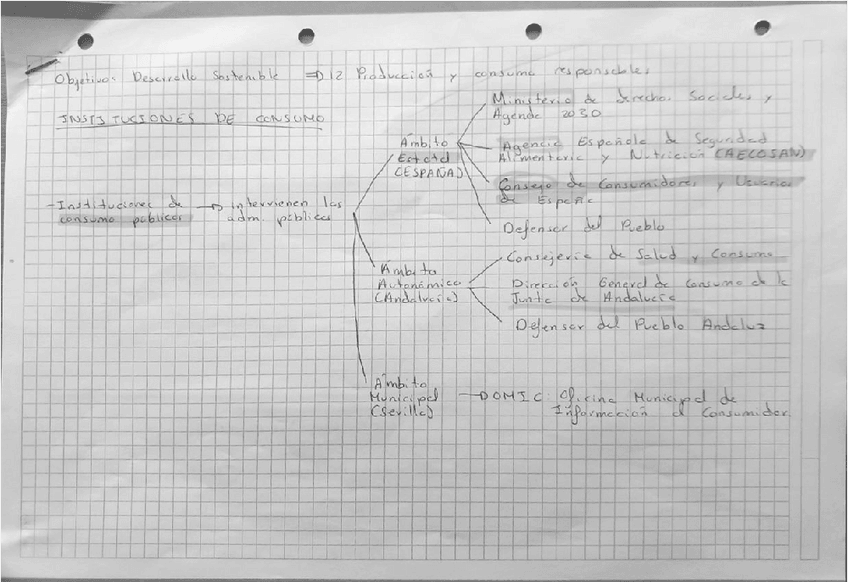 Objetivo: Desarrollo Sostenible ⇒ 12 Producción y consumo responsables
INSTITUCIONES DE CONSUMO
- Instituciones de consumo públicas → intervienen las adm. públicas
Ámbito
Estatal
(ESPAÑA)
Ministerio de derechos Sociales y
Agenda 2030
Agencia Española de Seguridad
Alimentaria y Nutrición (AECOSAN)
Consejo de Consumidores y Usuarios
de España
Defensor del Pueblo
Ámbito
Autonómico
(Andalucía)
Consejería de Salud y Consumo
Dirección General de Consumo de la
Junta de Andalucía
Defensor del Pueblo Andaluz
Ámbito
Municipal
(Sevilla)
→ OMIC: Oficina Municipal de
Información al Consumidor